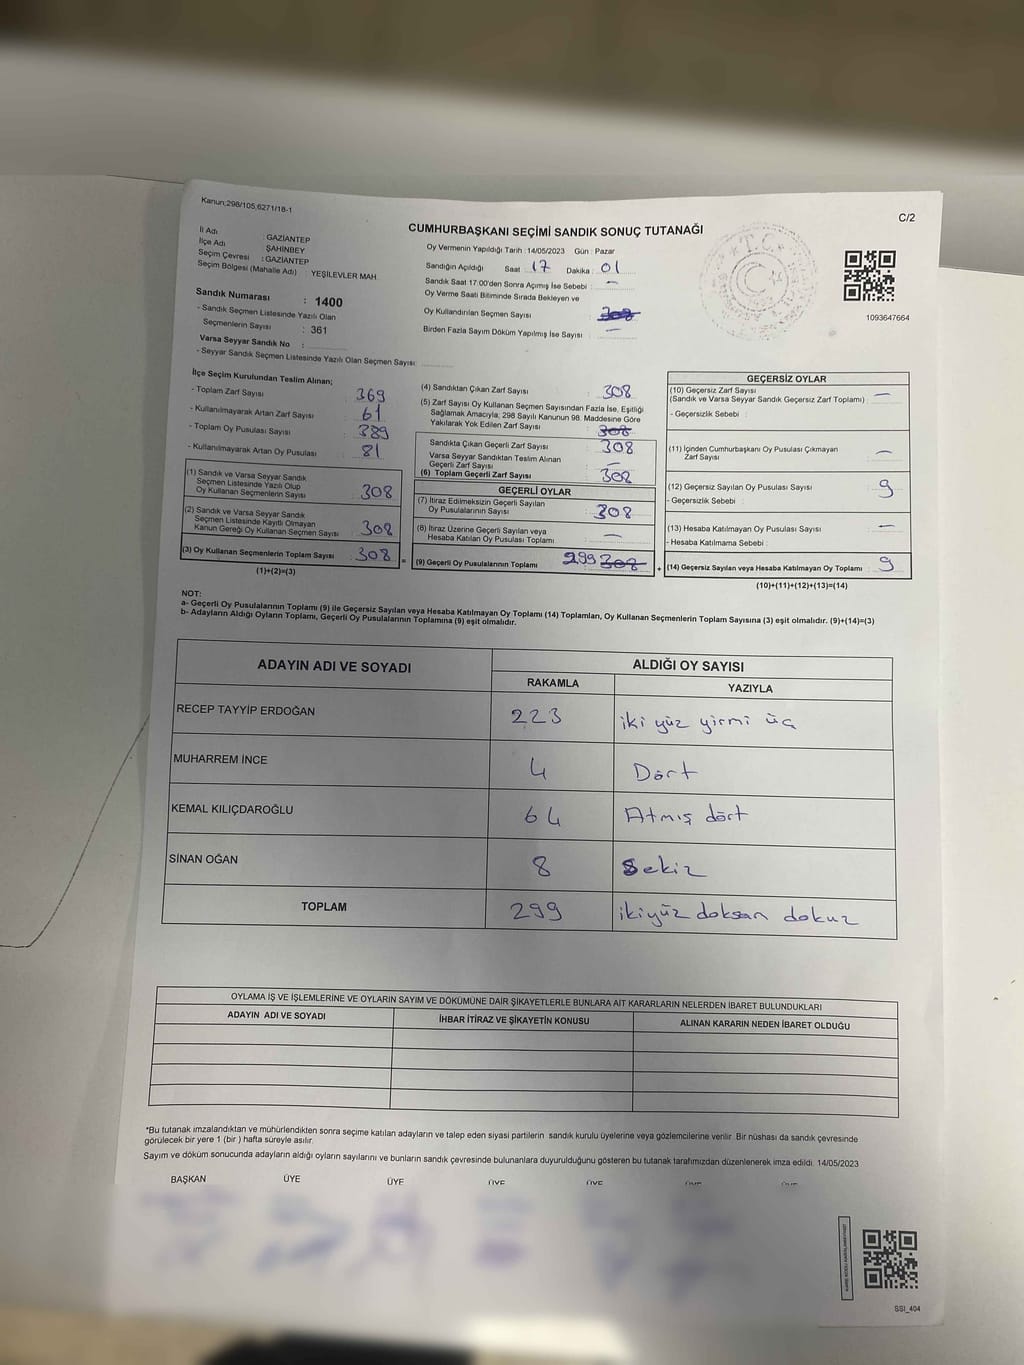 Kanun;298/105,6271/18-1
C/2
CUMHURBAŞKANI SEÇİMİ SANDIK SONUÇ TUTANAĞI
İl Adı : GAZİANTEP
İlçe Adı ŞAHİNBEY
Seçim Çevresi : GAZİANTEP
Seçim Bölgesi (Mahalle Adı) YEŞİLEVLER MAH.
Sandık Numarası : 1400
- Sandık Seçmen Listesinde Yazılı Olan
Seçmenlerin Sayısı : 361
Varsa Seyyar Sandık No :
- Seyyar Sandık Seçmen Listesinde Yazılı Olan Seçmen Sayısı:
Oy Vermenin Yapıldığı Tarih :14/05/2023 Gün : Pazar
Sandığın Açıldığı Saat 17 Dakika 01
Sandık Saat 17:00'den Sonra Açımış İse Sebebi : —
Oy Verme Saati Bitiminde Sırada Bekleyen ve
Oy Kullandırılan Seçmen Sayısı 308
Birden Fazla Sayım Döküm Yapılmış İse Sayısı : —
T.C.
1093647664
İlçe Seçim Kurulundan Teslim Alınan;
- Toplam Zarf Sayısı 369
- Kullanılmayarak Artan Zarf Sayısı 61
- Toplam Oy Pusulası Sayısı 389
- Kullanılmayarak Artan Oy Pusulası 81
(1) Sandık ve Varsa Seyyar Sandık
Seçmen Listesinde Yazılı Olup
Oy Kullanan Seçmenlerin Sayısı 308
(2) Sandık ve Varsa Seyyar Sandık
Seçmen Listesinde Kayıtlı Olmayan
Kanun Gereği Oy Kullanan Seçmen Sayısı 308
(3) Oy Kullanan Seçmenlerin Toplam Sayısı 308 =
(1)+(2)=(3)
(4) Sandıktan Çıkan Zarf Sayısı : 308
(5) Zarf Sayısı Oy Kullanan Seçmen Sayısından Fazla İse, Eşitliği
Sağlamak Amacıyla; 298 Sayılı Kanunun 98. Maddesine Göre
Yakılarak Yok Edilen Zarf Sayısı : 308
Sandıkta Çıkan Geçerli Zarf Sayısı : 308
Varsa Seyyar Sandıktan Teslim Alınan
Geçerli Zarf Sayısı : —
(6) Toplam Geçerli Zarf Sayısı : 308
GEÇERLİ OYLAR
(7) İtiraz Edilmeksizin Geçerli Sayılan
Oy Pusulalarının Sayısı : 308
(8) İtiraz Üzerine Geçerli Sayılan veya
Hesaba Katılan Oy Pusulası Toplamı : —
(9) Geçerli Oy Pusulalarının Toplamı 299 308 +
GEÇERSİZ OYLAR
(10) Geçersiz Zarf Sayısı
(Sandık ve Varsa Seyyar Sandık Geçersiz Zarf Toplamı) : —
- Geçersizlik Sebebi :
(11) İçinden Cumhurbaşkanı Oy Pusulası Çıkmayan
Zarf Sayısı : —
(12) Geçersiz Sayılan Oy Pusulası Sayısı : 9
- Geçersizlik Sebebi :
(13) Hesaba Katılmayan Oy Pusulası Sayısı : —
- Hesaba Katılmama Sebebi :
(14) Geçersiz Sayılan veya Hesaba Katılmayan Oy Toplamı : 9
(10)+(11)+(12)+(13)=(14)
NOT:
a- Geçerli Oy Pusulalarının Toplamı (9) ile Geçersiz Sayılan veya Hesaba Katılmayan Oy Toplamı (14) Toplamları, Oy Kullanan Seçmenlerin Toplam Sayısına (3) eşit olmalıdır. (9)+(14)=(3)
b- Adayların Aldığı Oyların Toplamı, Geçerli Oy Pusulalarının Toplamına (9) eşit olmalıdır.
ADAYIN ADI VE SOYADI ALDIĞI OY SAYISI
RAKAMLA YAZIYLA
RECEP TAYYİP ERDOĞAN 223 iki yüz yirmi üç
MUHARREM İNCE 4 Dört
KEMAL KILIÇDAROĞLU 64 Atmış dört
SİNAN OĞAN 8 Sekiz
TOPLAM 299 ikiyüz doksan dokuz
OYLAMA İŞ VE İŞLEMLERİNE VE OYLARIN SAYIM VE DÖKÜMÜNE DAİR ŞİKAYETLERLE BUNLARA AİT KARARLARIN NELERDEN İBARET BULUNDUKLARI
ADAYIN ADI VE SOYADI İHBAR İTİRAZ VE ŞİKAYETİN KONUSU ALINAN KARARIN NEDEN İBARET OLDUĞU
*Bu tutanak imzalandıktan ve mühürlendikten sonra seçime katılan adayların ve talep eden siyasi partilerin sandık kurulu üyelerine veya gözlemcilerine verilir. Bir nüshası da sandık çevresinde
görülecek bir yere 1 (bir ) hafta süreyle asılır.
Sayım ve döküm sonucunda adayların aldığı oyların sayılarını ve bunların sandık çevresinde bulunanlara duyurulduğunu gösteren bu tutanak tarafımızdan düzenlenerek imza edildi. 14/05/2023
BAŞKAN ÜYE ÜYE ÜYE ÜYE ÜYE ÜYE
SSI_404